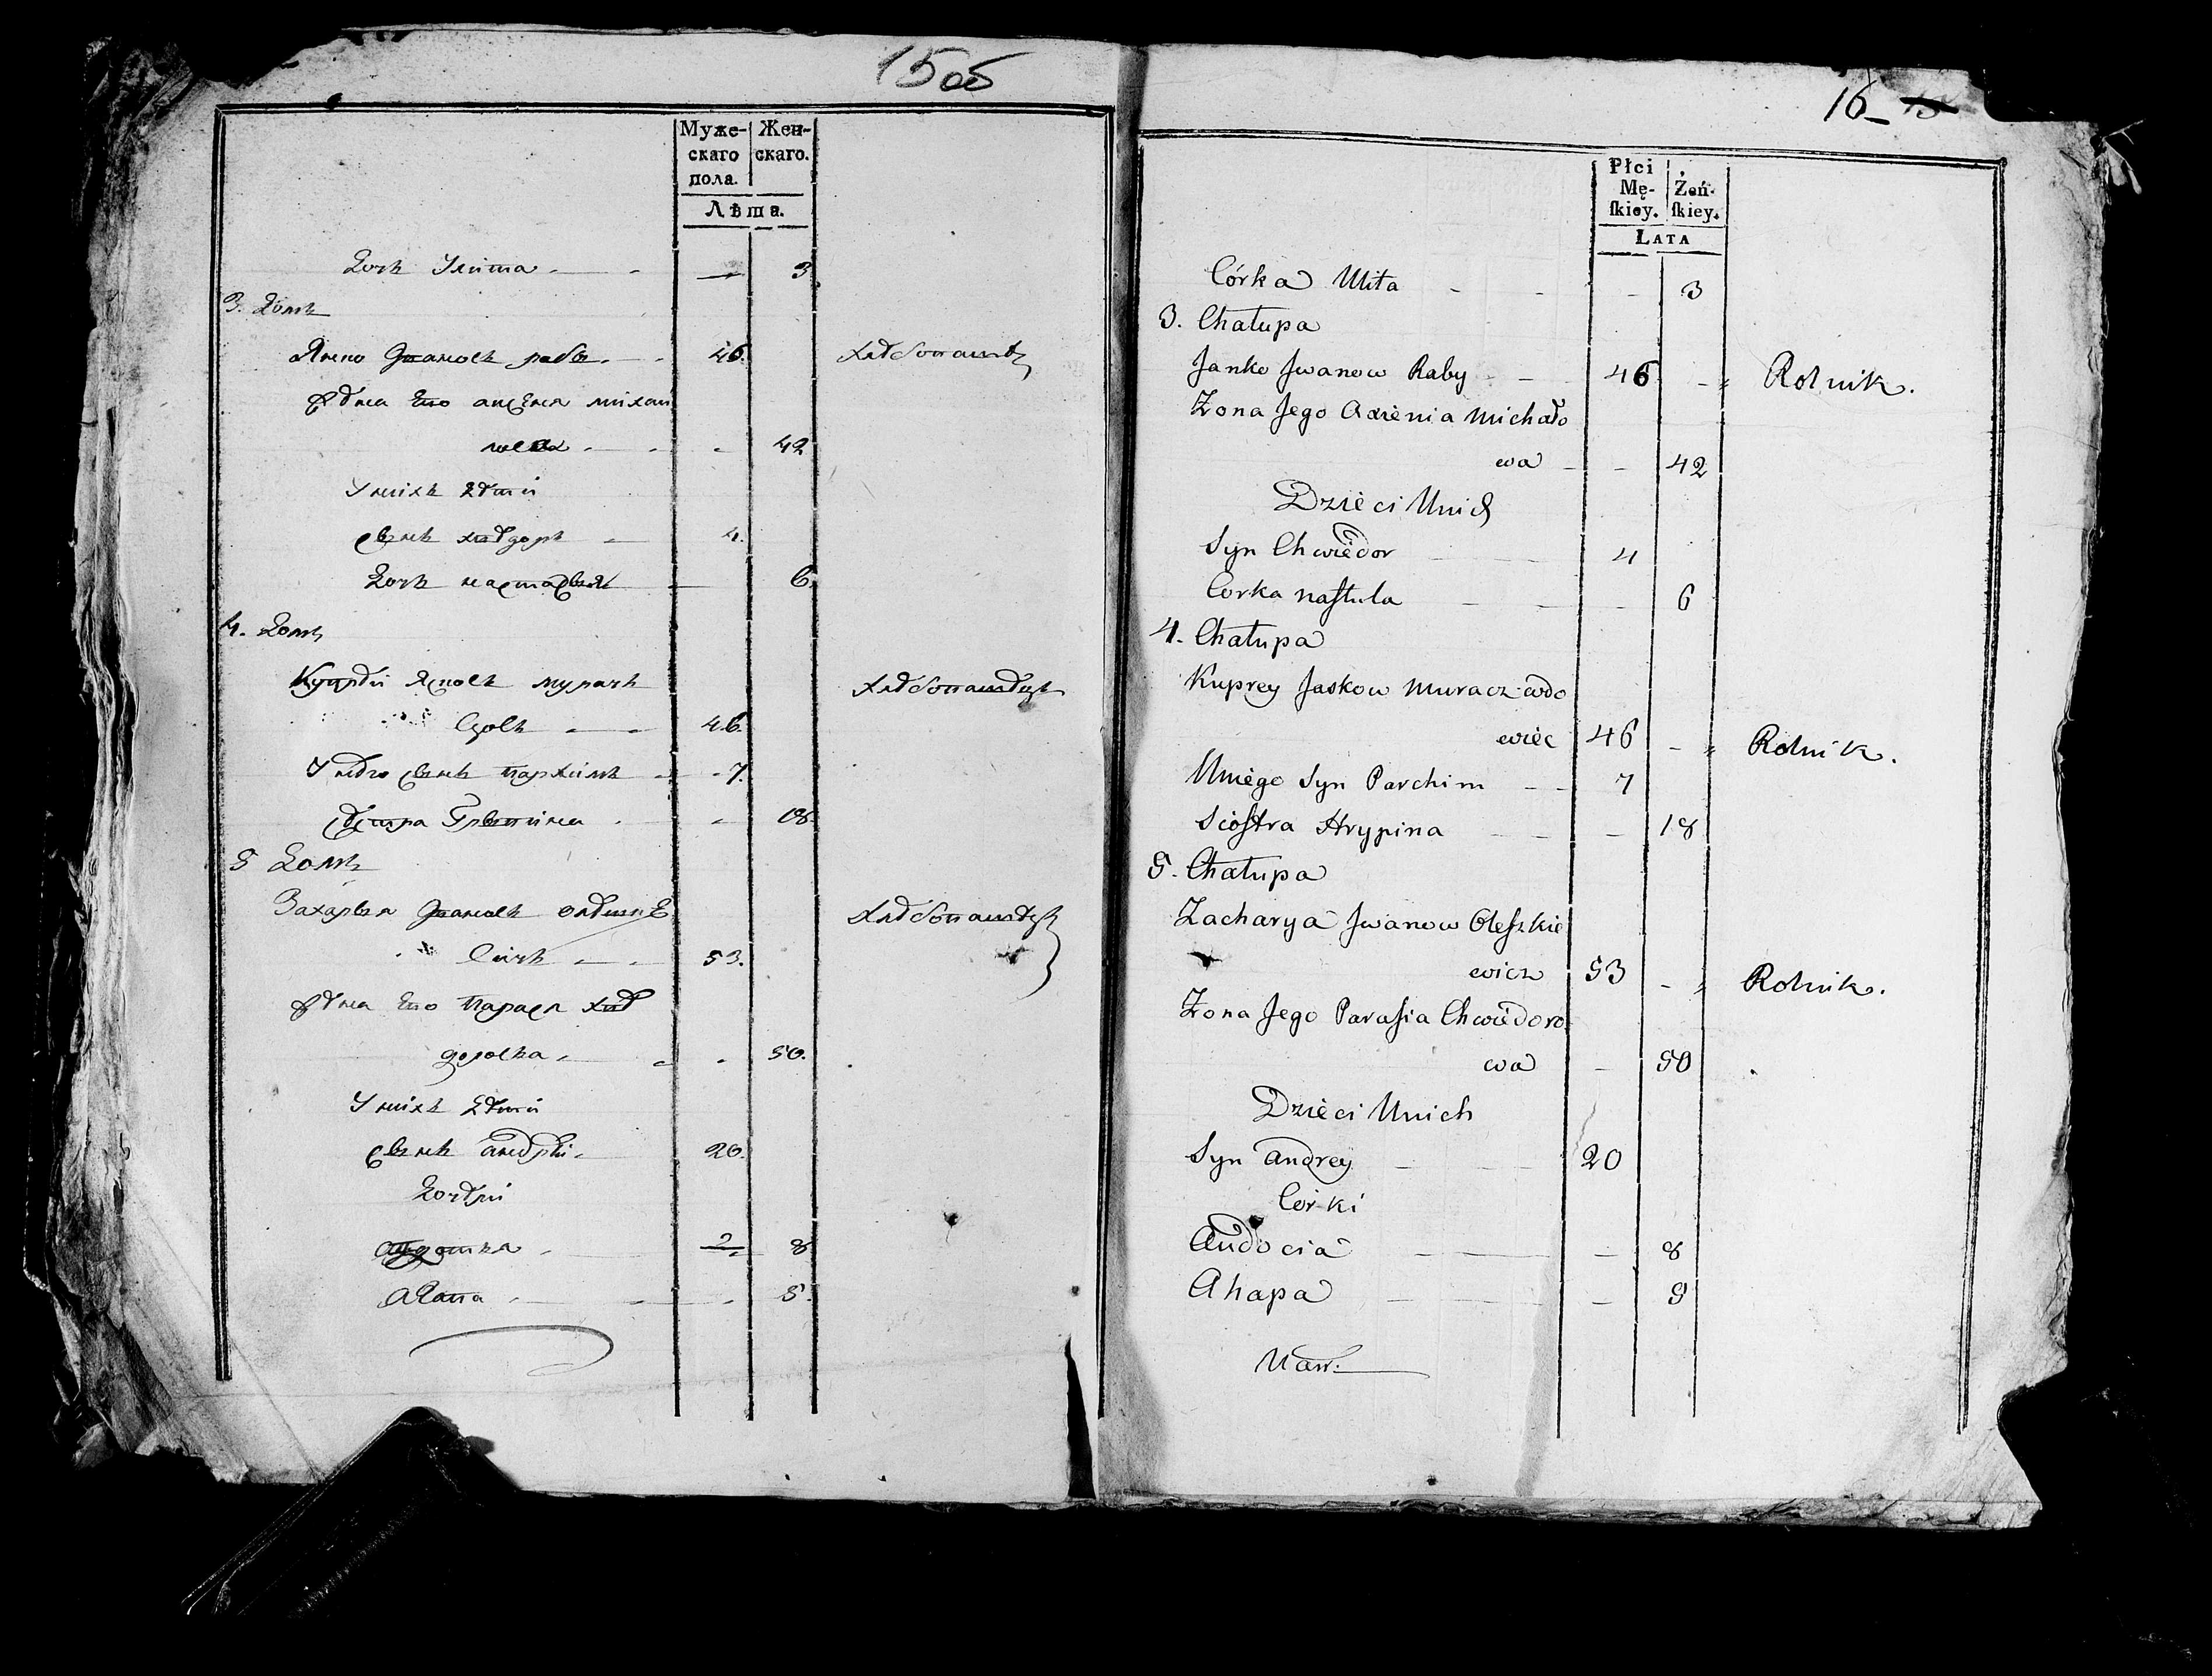 15 об
Муже- Жен-
скаго скаго.
пола.
Лѣта.
Дочь Улита 3
3. Домъ
Янко Ивановъ рабы 46. хлебопашец
Жена Его аксеня михаи
лова 42
У нихъ Дети
Сынъ хведоръ 4.
Дочь 6.
4. Домъ
Купрей Ясковъ мурачь хлебопашецъ
46.
У него Сынъ Пархимъ 7.
Сестра Грыпина 18.
5 Домъ
Захарыя Ивановъ олешке хлебопашецъ
вичъ 53.
Жена Его Парася хве
дорова 50.
У нихъ Дети
Сынъ андрей 20.
Дочери
8
Агапа 5.
16 15
Płci
Mę- Żeń-
ſkiey. ſkiey.
LATA
Córka Ulita 3
3. Chałupa
Janko Jwanow Raby 46 Rolnik.
Żona Jego Axienia Michało
wa 42
Dzieci Unich
Syn Chwiedor 4
Corka Naſtula 6
4. Chałupa
Kuprey Jaskow Muracz wdo
wiec 46 Rolnik.
Uniego Syn Parchim 7
Sioſtra Hrypina 18
5. Chałupa
Zacharya Jwanow Oleſzkie
wicz 53 Rolnik.
Żona Jego Paraſia Chwiedoro
wa 50
Dzieci Unich
Syn Andrey 20
Corki
Audocia 8
Ahapa 5